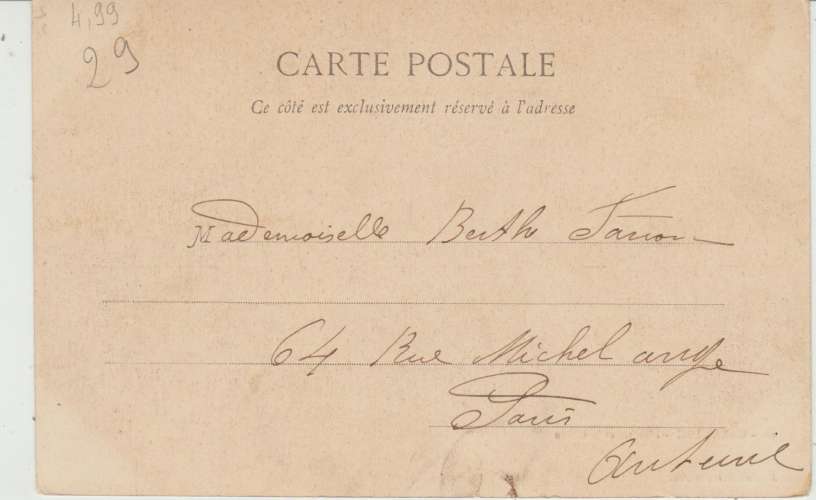 4,99
29
CARTE POSTALE
Ce côté est exclusivement réservé à l'adresse
Mademoiselle Berthe
64 Rue Michel ange
Paris
Auteuil